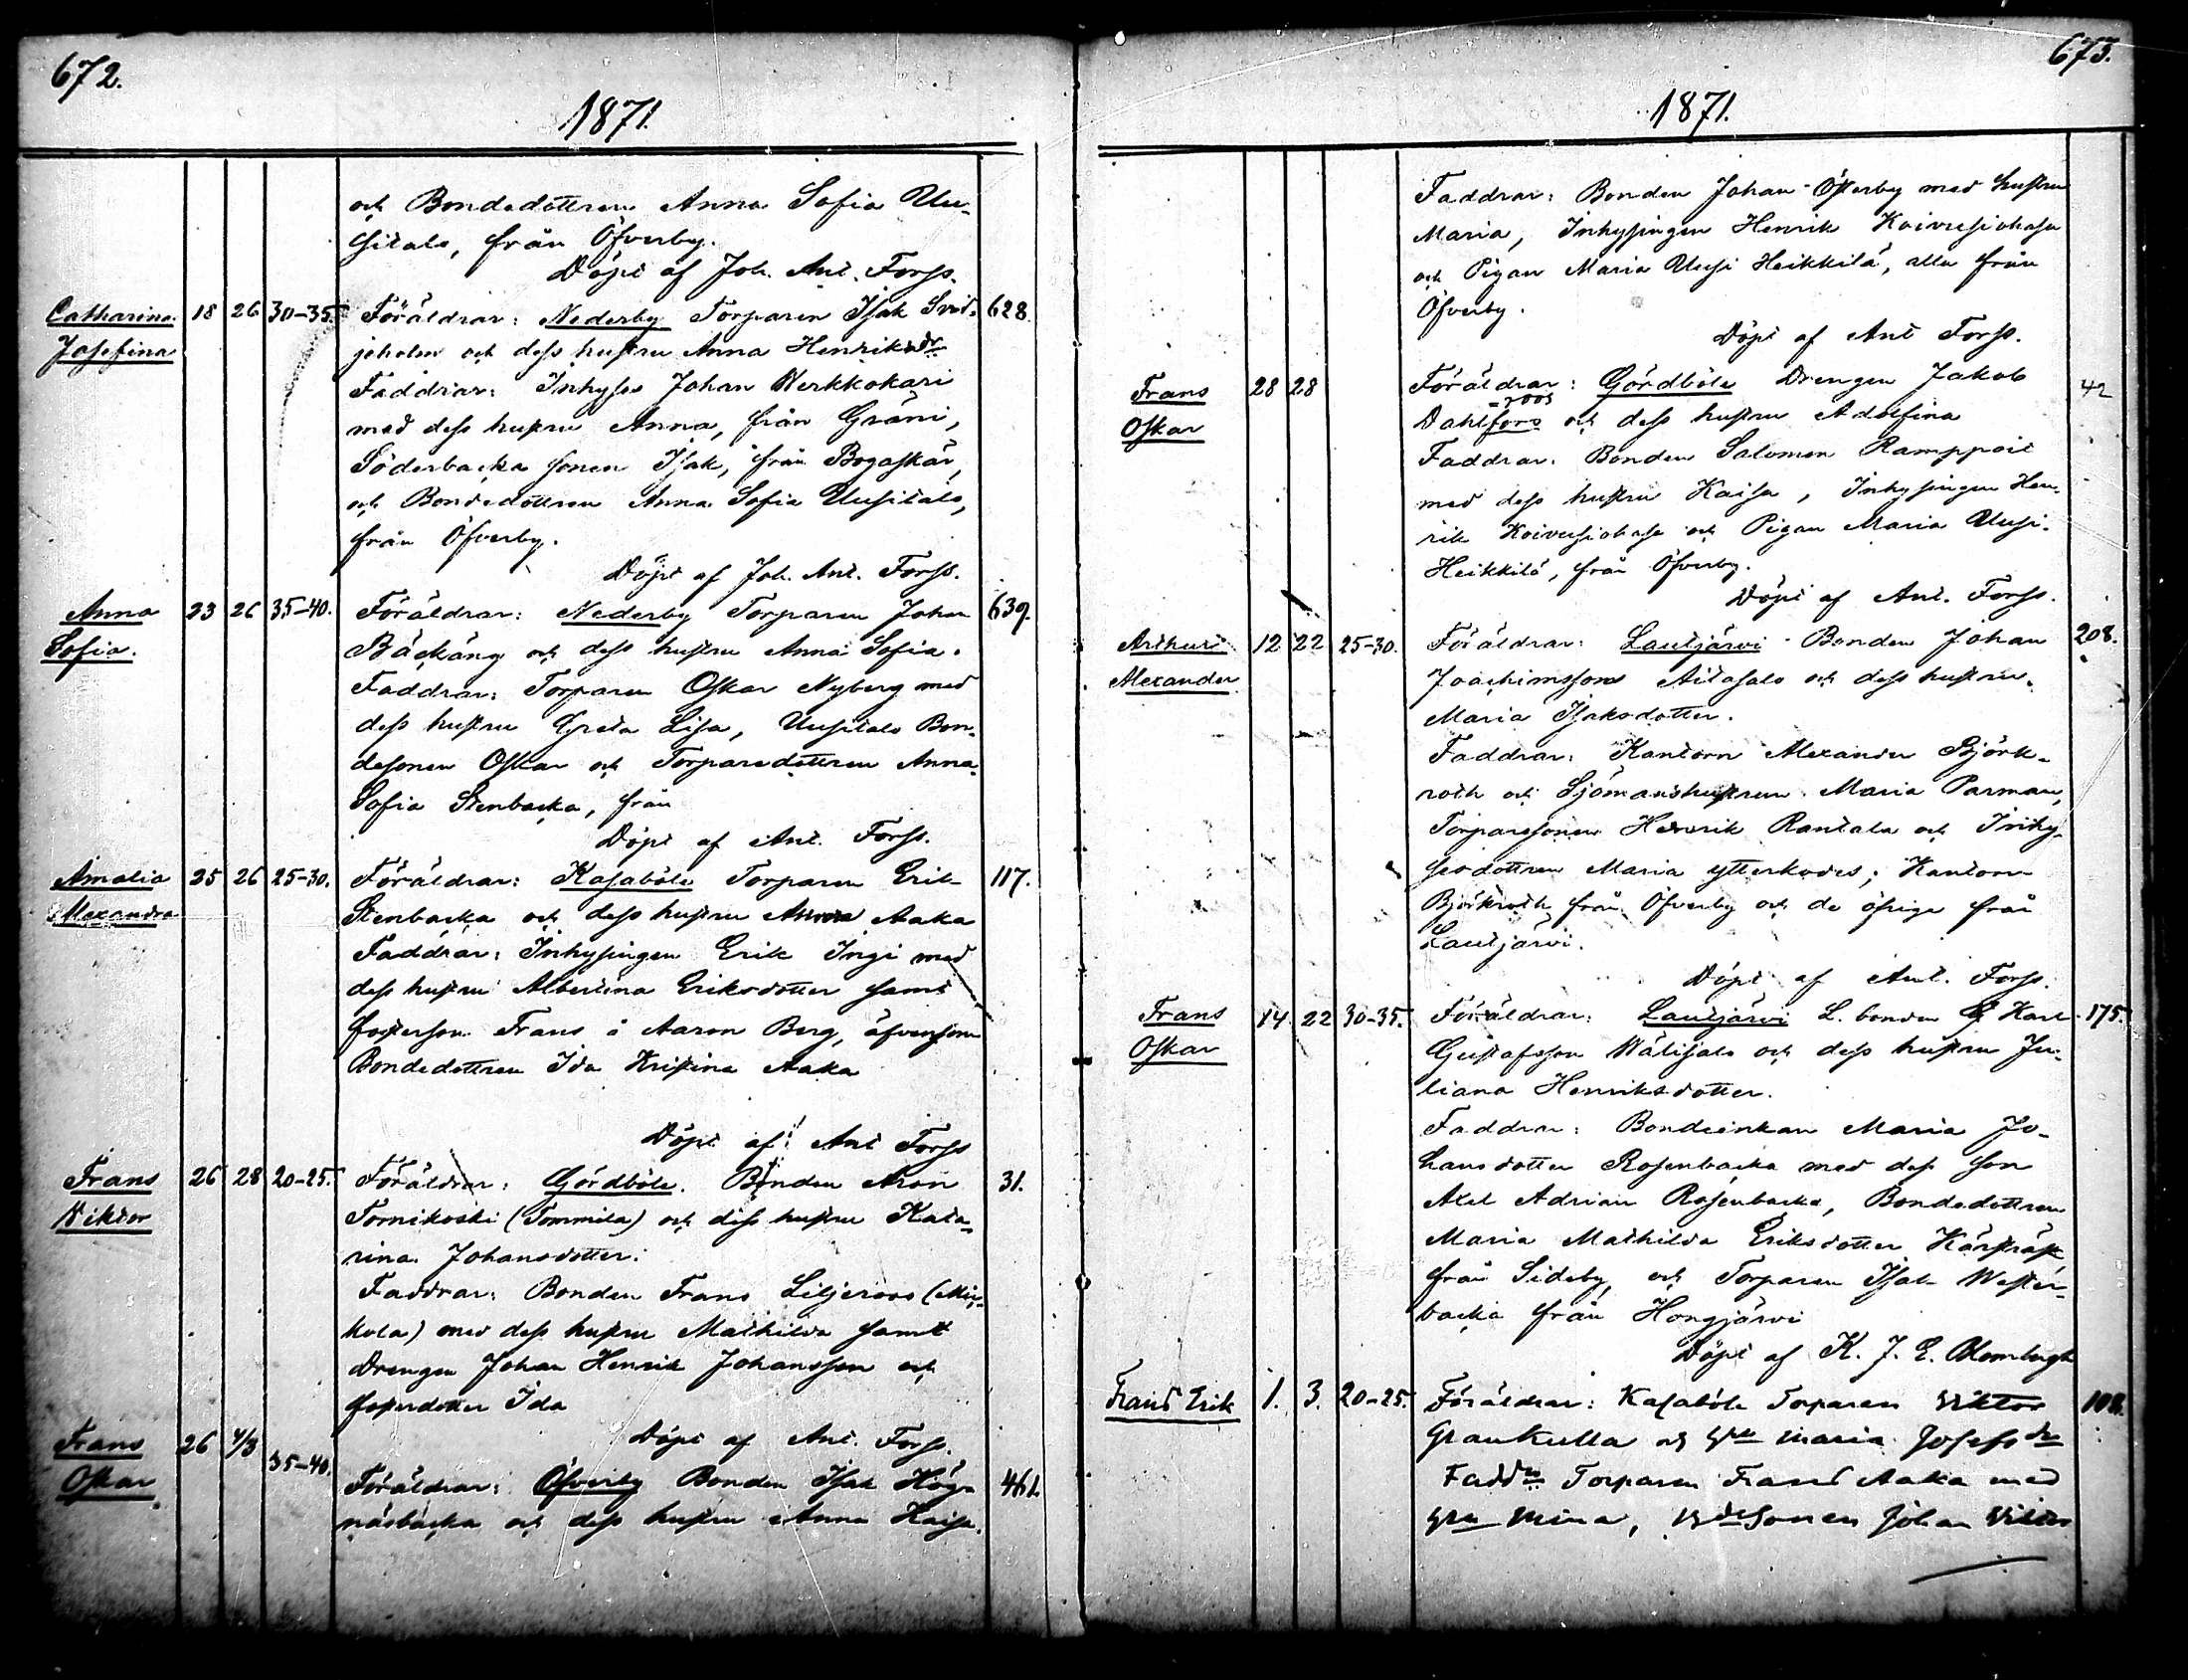 672.
1871.
och Bondedottren Anna Sofia Uu-
sitalo, från Öfverby.
Döpt af Joh. Ant. Forss.
Catharina 18 26 30-35. Föräldrar: Nederby Torparen Isak Svid- 628.
Josefina joholm och dess hustru Anna Henriksdr
Faddrar: Inhyses Johan Werkkokari
med dess hustru Anna, från Gräni,
Söderbacka sonen Isak, från Bogaskär,
och Bondedottren Anna Sofia Uusitalo,
från Öfverby.
Döpt af Joh. Ant. Forss.
Anna 23 26 35-40. Föräldrar: Nederby Torparen Johan 639.
Sofia. Bäckäng och dess hustru Anna Sofia.
Faddrar: Torparen Oskar Nyberg med
dess hustru Greta Lisa, Uusitalo Bon-
desonen Oskar och Torparedottren Anna
Sofia Stenbacka, från
Döpt af Ant. Forss.
Amalia 25 26 25-30. Föräldrar: Kasaböle Torparen Erik 117.
Alexandra Stenbacka och dess hustru Anna Aaka
Faddrar: Inhysingen Erik Ingi med
dess hustru Albertina Eriksdotter samt
fosterson Frans å Aaron Berg, äfvensom
Bondedottren Ida Kristina Aaka
Döpt af Ant Forss
Frans 26 28 20-25. Föräldrar: Gårdböle. Bonden Aron 31.
Viktor Tornikoski (Tommila) och dess hustru Kata-
rina Johansdotter.
Faddrar: Bonden Frans Liljeroos
kola) med dess hustru Mathilda samt
Drengen Johan Henrik Johansson och
fosterdotter Ida
Döpt af Ant. Forss.
Frans 26 4/3 35-40.
Oskar Föräldrar: Öfverby Bonden Isak Hög- 461.
näsbacka och dess hustru Anna Kaisa.
673.
1871.
Faddrar: Bonden Johan Öfverby med hustru
Maria, Inhysingen Henrik Koivusiohasa
och Pigan Maria Uusi Heikkilä, alla från
Öfverby.
Döpt af Ant Forss.
Frans 28 28 Föräldrar: Gårdböle Drengen Jakob 42
=roos
Oskar Dahlfors och dess hustru Adolfina
Faddrar: Bonden Salomon Ramppoit
med dess hustru Kaisa, Inhysingen Hen-
rik Koivusiohasa och Pigan Maria Uusi-
Heikkilä, från Öfverby.
Döpt af Ant. Forss.
Arthur 12 22 25-30. Föräldrar: Lautjärvi Bonden Johan 208.
Alexander Joachimsson Aitasalo och dess hustru
Maria Isaksdotter.
Faddrar: Kantorn Alexander Björk-
roth och Sjömanshustrun Maria Parman,
Torparesonen Henrik Rantala och Inhy-
sesdottren Maria Ytterkodes; Kantorn
Björkroth från Öfverby och de öfriga från
Lautjärvi.
Döpt af Ant. Forss.
Frans 14 22 30-35. Föräldrar: Lautjärvi L. bonden Karl 175.
Oskar Gustafsson Wälisalo och dess hustru Ju-
liana Henriksdotter.
Faddrar: Bondeenkan Maria Jo-
hansdotter Rosenbacka med dess son
Axel Adrian Rosenbacka, Bondedottren
Maria Mathilda Eriksdotter
från Sideby, och Torparen Isak Wester-
backa från Hongjärvi
Döpt af K. J. E. Blombergh
Frans Erik 1. 3. 20-25. Föräldrar: Kasaböle Torparen Viktor 108.
Grankulla och Hu Maria Josefsdr
Faddr Torparen Frans Aaka med
Hu Mina, Bdesonen Johan